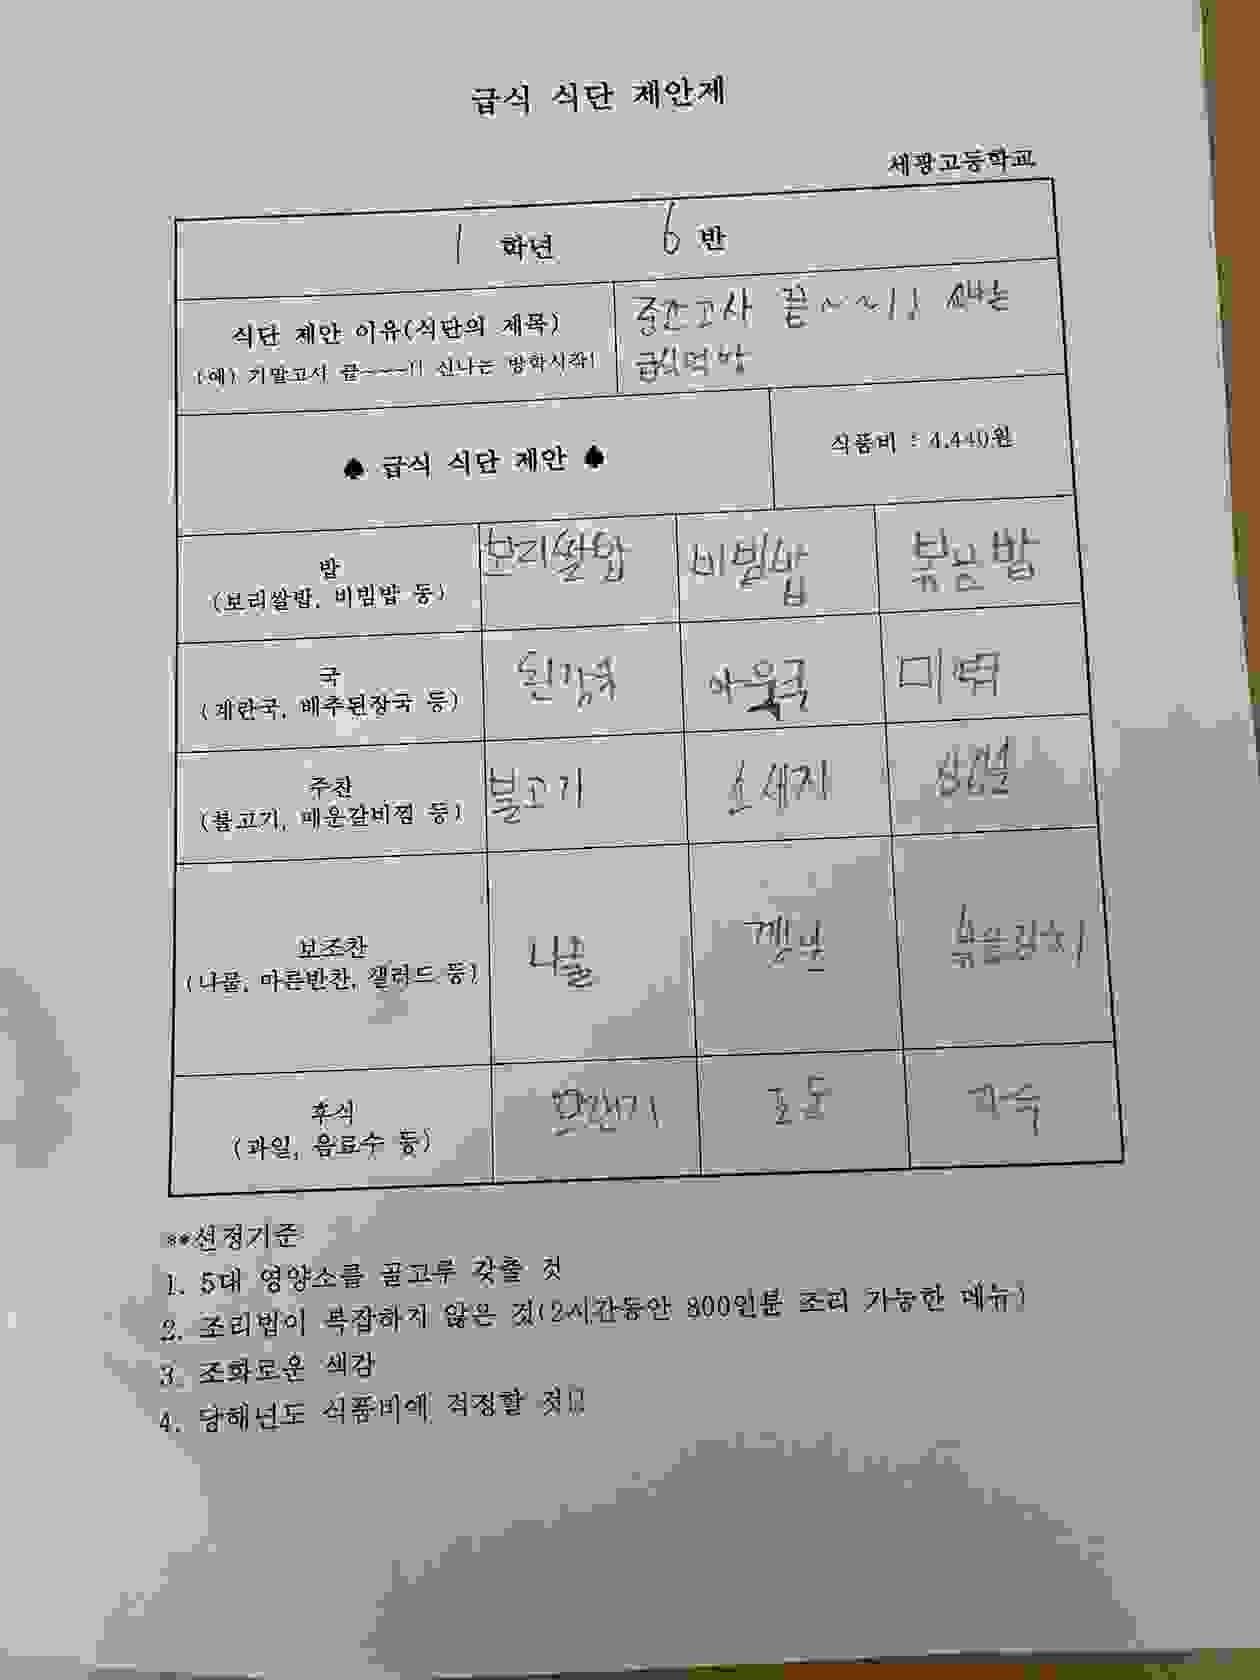 급식 식단 제안제
세광고등학교
1 학년 6 반
식단 제안 이유(식단의 제목)
(예) 기말고서 끝~~~!! 신나는 방학시작!
중간고사 끝~~!!
급식먹방
♠ 급식 식단 제안 ♠
식품비 : 4,440원
밥
(보리쌀밥, 비빔밥 등)
보리쌀밥 비빔밥 볶은밥
국
(계란국, 배추된장국 등)
된장국 아욱국 미역
주찬
(불고기, 매운갈비찜 등)
불고기 소세지
보조찬
(나물, 마른반찬, 샐러드 등)
나물 볶은김치
후식
(과일, 음료수 등)
포도
**선정기준
1. 5대 영양소를 골고루 갖출 것
2. 조리법이 복잡하지 않은 것(2시간동안 800인분 조리 가능한 메뉴)
3. 조화로운 색감
4. 당해년도 식품비에 적정할 것